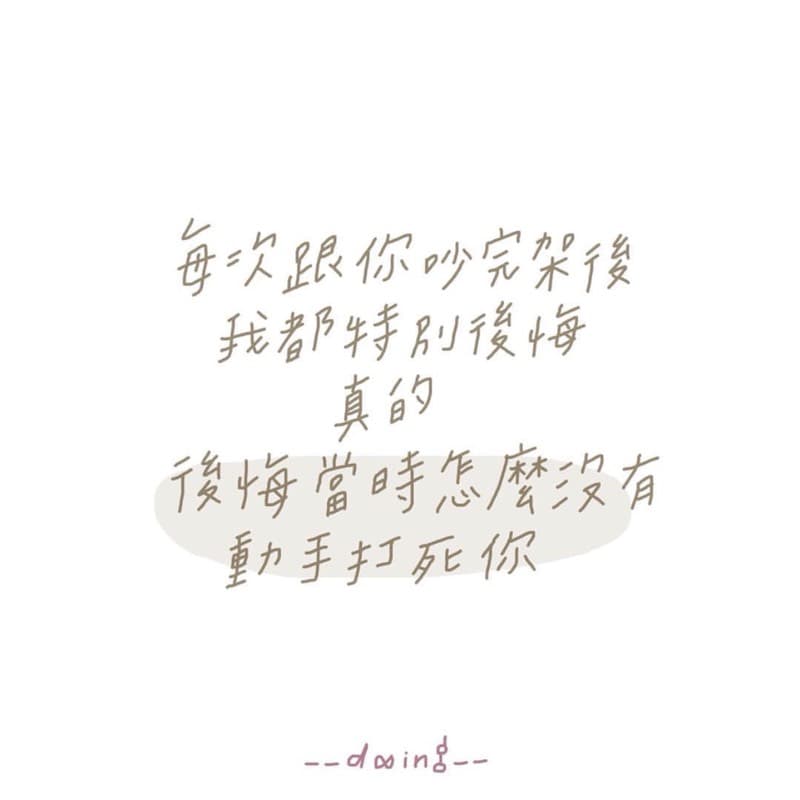 每次跟你吵完架後
我都特別後悔
真的
後悔當時怎麼沒有
動手打死你
--d∞ing--